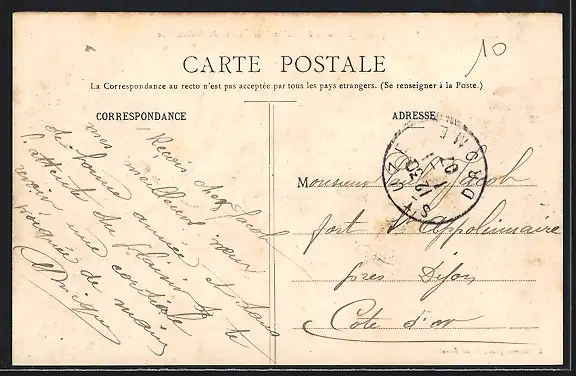 10
CARTE POSTALE
La Correspondance au recto n'est pas acceptée par tous les pays etrangers. (Se renseigner à la Poste.)
CORRESPONDANCE
ADRESSE
Reçois cher Jacob
mes meilleurs vœux
de bonne année et dans
l'attente du plaisir de te
revoir une cordiale
poignée de main
Monsieur Jacob
fort St Appolinaire
près Dijon
Cote d'or